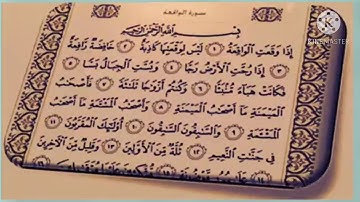 سورة الواقعة
بِسْمِ اللَّهِ الرَّحْمَٰنِ الرَّحِيمِ
إِذَا وَقَعَتِ الْوَاقِعَةُ ١ لَيْسَ لِوَقْعَتِهَا كَاذِبَةٌ ٢ خَافِضَةٌ رَّافِعَةٌ
٣ إِذَا رُجَّتِ الْأَرْضُ رَجًّا ٤ وَبُسَّتِ الْجِبَالُ بَسًّا ٥
فَكَانَتْ هَبَاءً مُّنبَثًّا ٦ وَكُنتُمْ أَزْوَاجًا ثَلَاثَةً ٧ فَأَصْحَابُ
الْمَيْمَنَةِ مَا أَصْحَابُ الْمَيْمَنَةِ ٨ وَأَصْحَابُ الْمَشْأَمَةِ مَا أَصْحَابُ
الْمَشْأَمَةِ ٩ وَالسَّابِقُونَ السَّابِقُونَ ١٠ أُولَٰئِكَ الْمُقَرَّبُونَ ١١
فِي جَنَّاتِ النَّعِيمِ ١٢ ثُلَّةٌ مِّنَ الْأَوَّلِينَ ١٣ وَقَلِيلٌ مِّنَ الْآخِرِينَ
KINEMASTER